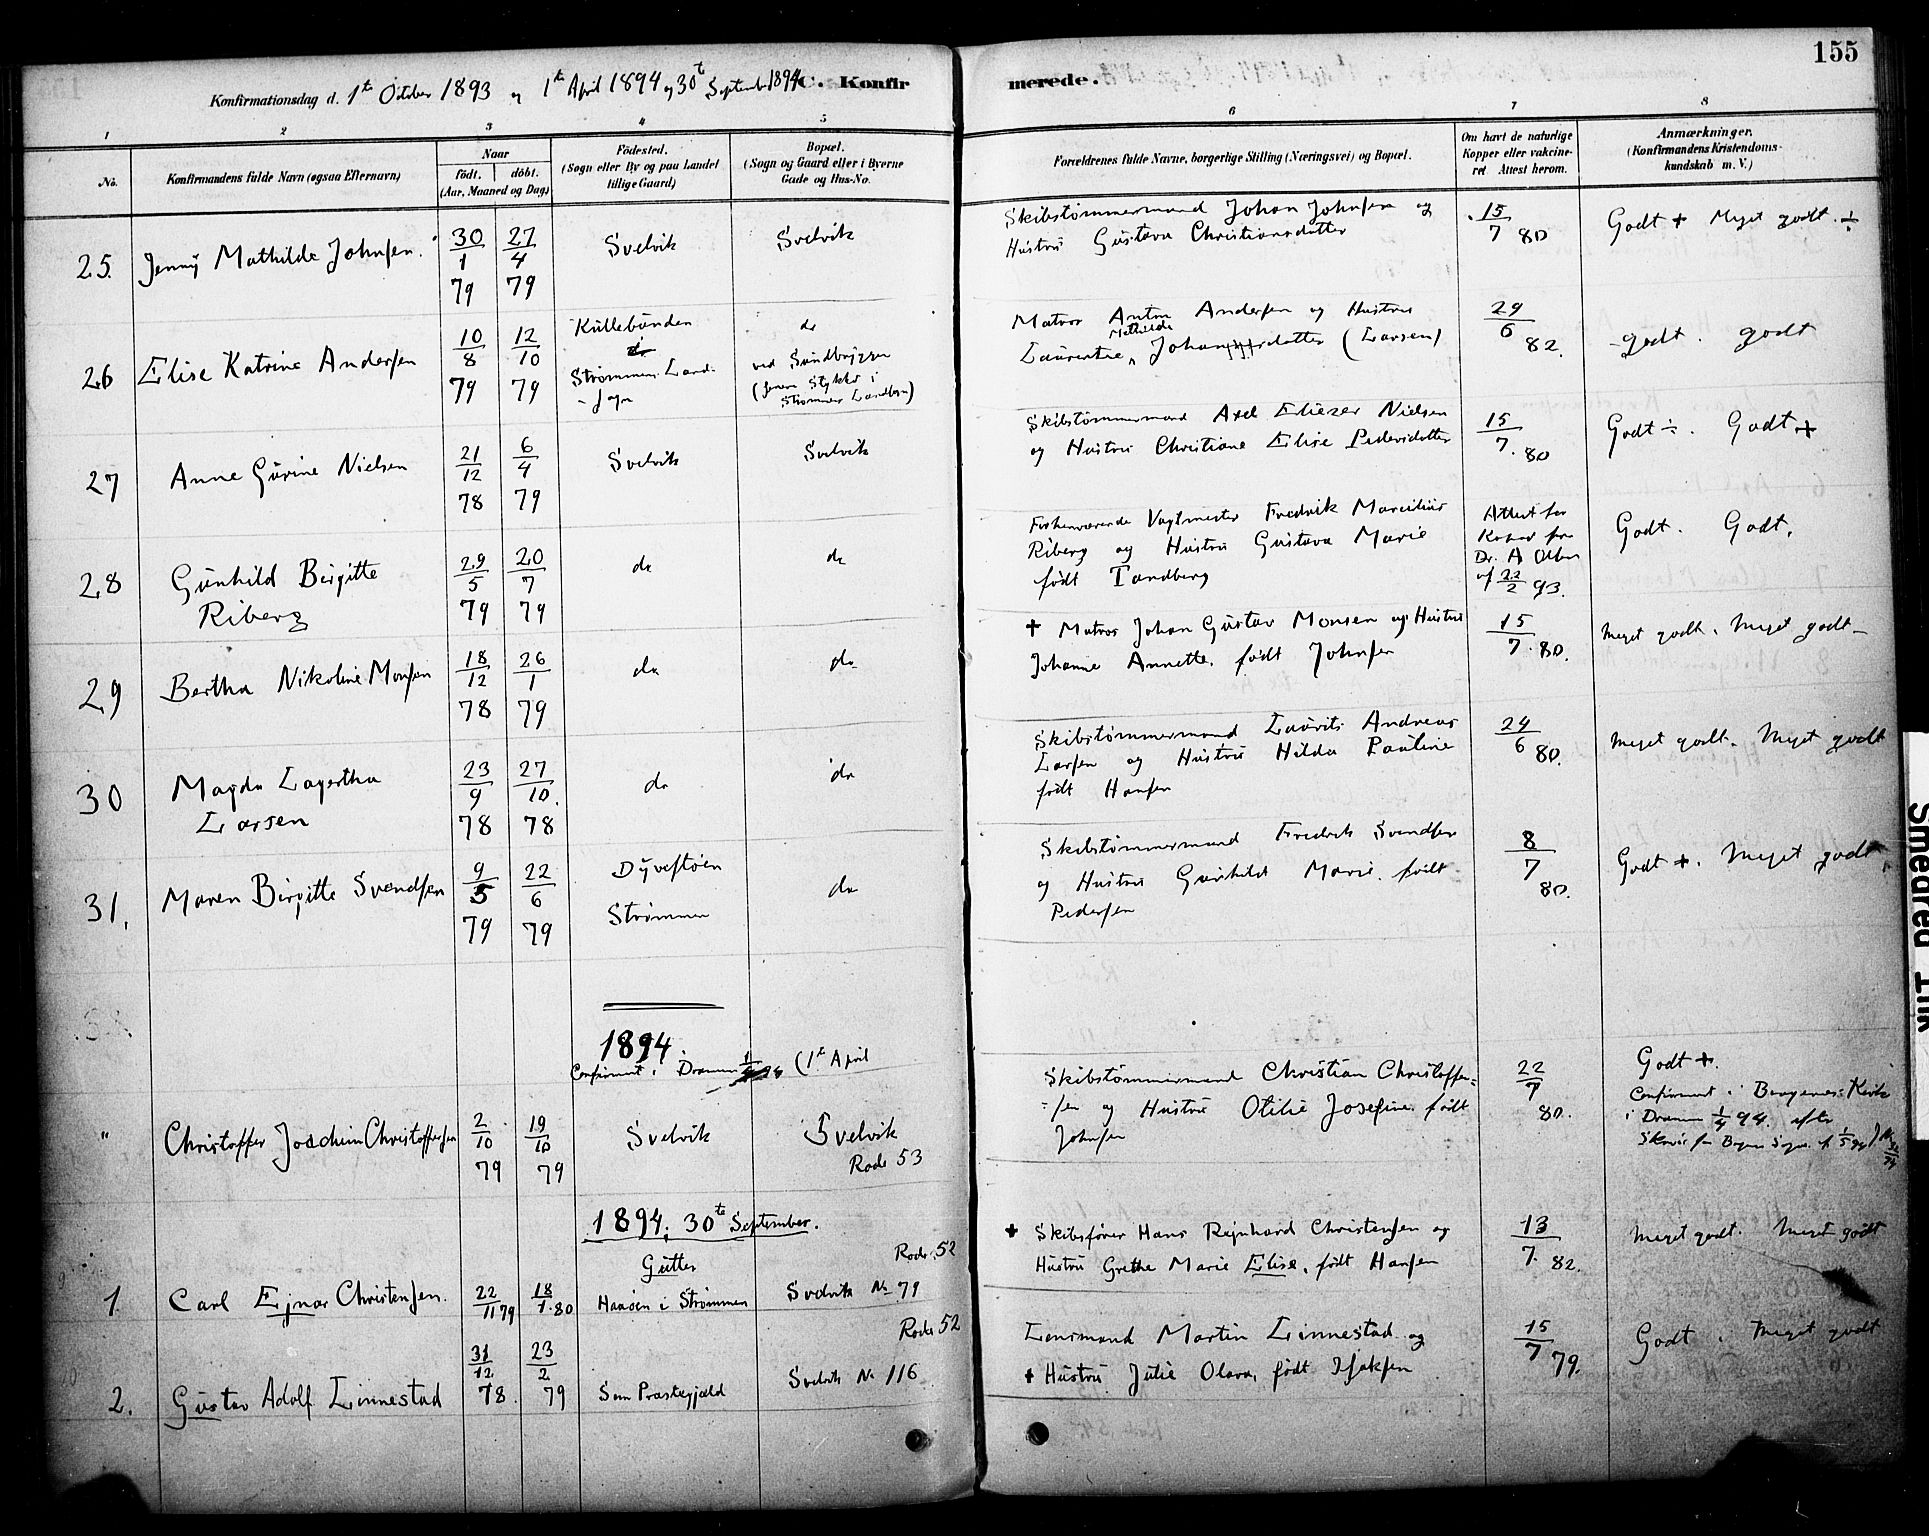 155
Konfirmationsdag d. 1ste October 1893 og 1ste April 1894 og 30te September 1894 C. Konfirmerede.
1 2 3 4 5 6 7 8
No.
Konfirmandens fulde Navn (ogsaa Efternavn)
Naar
födt. döbt.
(Aar, Maaned og Dag)
Födested.
(Sogn eller By og paa Landet
tillige Gaard)
Bopæl.
(Sogn og Gaard eller i Byerne
Gade og Hus-No.
Forældrenes fulde Navne, borgerlige Stilling (Næringsvei) og Bopæl.
Om havt de naturlige
Kopper eller vakcine-
ret Attest herom.
Anmærkninger.
(Konfirmandens Kristendoms-
kundskab m. V.)
25. Jenny Mathilde Johnsen. 30/1 79 27/4 79 Svelvik Svelvik
Skibstømmermand Johan Johnsen og
Hustru Gustava Christiansdatter
15/7 80 Godt + Meget godt. ÷
26 Elise Katrine Andersen 10/8 79 12/10 79
Strømmen Land-
sogn
ved Sandbryggen
Matros Anton Andersen og Hustru
Laurentze Mathilde Johannesdatter (Larsen)
29/6 82. godt. godt
27 Anne Gurine Nielsen 21/12 78 6/4 79 Svelvik Svelvik
Skibstømmermand Axel Eliezer Nielsen
og Hustru Christiane Elise Pedersdatter
15/7. 80 Godt ÷. Godt +
28 Gunhild Birgitte
Riberg
29/5 79 20/7 79 do do
Forhenværende Vagtmester Fredrik Marcilius
Riberg og Hustru Gustava Marie
født Tandberg
Attest for
Kopper fra
Dr. A Olsen
af 22/2 93.
Godt. Godt.
29 Bertha Nikoline Monsen 18/12 78 26/1 79 do do
+ Matros Johan Gustav Monsen og Hustru
Johanne Annette, født Johnsen
15/7. 80. Meget godt. Meget godt
30 Magda Lagertha
Larsen
23/9 78 27/10. 78 do do
Skibstømmermand Laurits Andreas
Larsen og Hustru Hilda Pauline
født Hansen
24/6 80. Meget godt. Meget godt
31. Maren Birgitte Svendsen 9/5 79 22/6 79
Dypestøen
Strømmen
do
Skibstømmermand Fredrik Svendsen
og Hustru Gunhild Marie. født
Pedersen
8/7 80. Godt +. Meget godt
1894.
Confirmert i Drammen 1/4 94 (1ste April
" Christoffer Joachim Christoffersen 2/10 79 19/10 79 Svelvik Svelvik
Rode 53
Skibstømmermand Christian Christoffer=
=sen og Hustru Otilie Josefine. født
Johnsen
22/7 80.
Godt +.
Confirmert i Bragernes Kirke
i Drammen 1/4 94. efter
1894, 30te September.
Gutter
1. Carl Ejnar Christensen. 22/11 79 18/1. 80 Haaøen i Strømmen
Rode 52
Svelvik No 79
+ Skibsfører Hans Rejnhard Christensen og
Hustru Grethe Marie Elise, født Hansen
13/7. 82. Meget godt. Meget godt
2. Gustav Adolf Linnestad 31/12 78. 23/2 79 Sem Præstegjæld
Rode 52
Svelvik No 116
Lensmand Martin Linnestad og
+ Hustru Julie Olava, født Isaksen
15/7 79. Godt. Meget godt
Smeared Ink